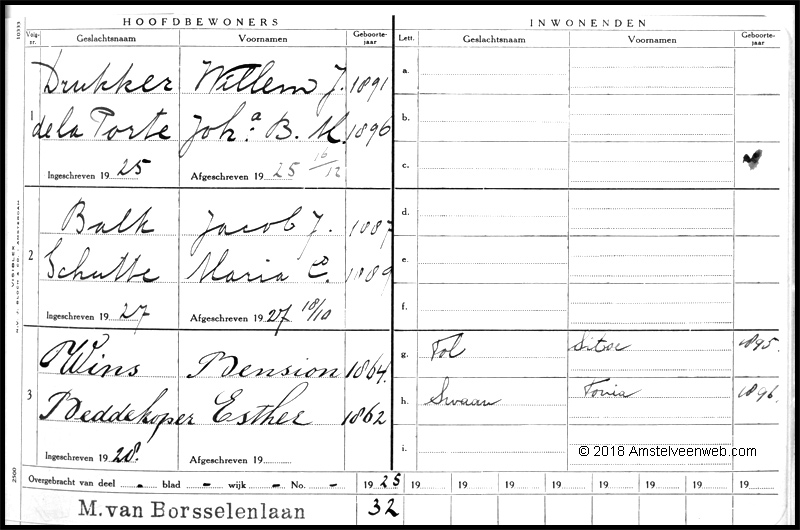 HOOFDBEWONERS INWONENDEN
Volg-nr. Geslachtsnaam Voornamen Geboorte-jaar Lett. Geslachtsnaam Voornamen Geboorte-jaar
Drukker Willem J. 1891 a.
1 de la Porte Joh.a B. M. 1896 b.
Ingeschreven 19 25 Afgeschreven 19 25 16/12 c.
Balk Jacob J. 1887 d.
2 Schutte Maria C. 1889 e.
Ingeschreven 19 27 Afgeschreven 19 27 18/10 f.
Wins Bension 1864. g. Tol Sitse 1895.
3 Beddekoper Esther 1862 h. Swaan Tonia 1896.
Ingeschreven 19 28. Afgeschreven 19 i.
© 2018 Amstelveenweb.com
Overgebracht van deel - blad - wijk - No. - 19 25 19 19 19 19 19 19 19 19
M. van Borsselenlaan 32
10333
N.V. J. BLOCH & CO. - AMSTERDAM
VISIBLEX
2500